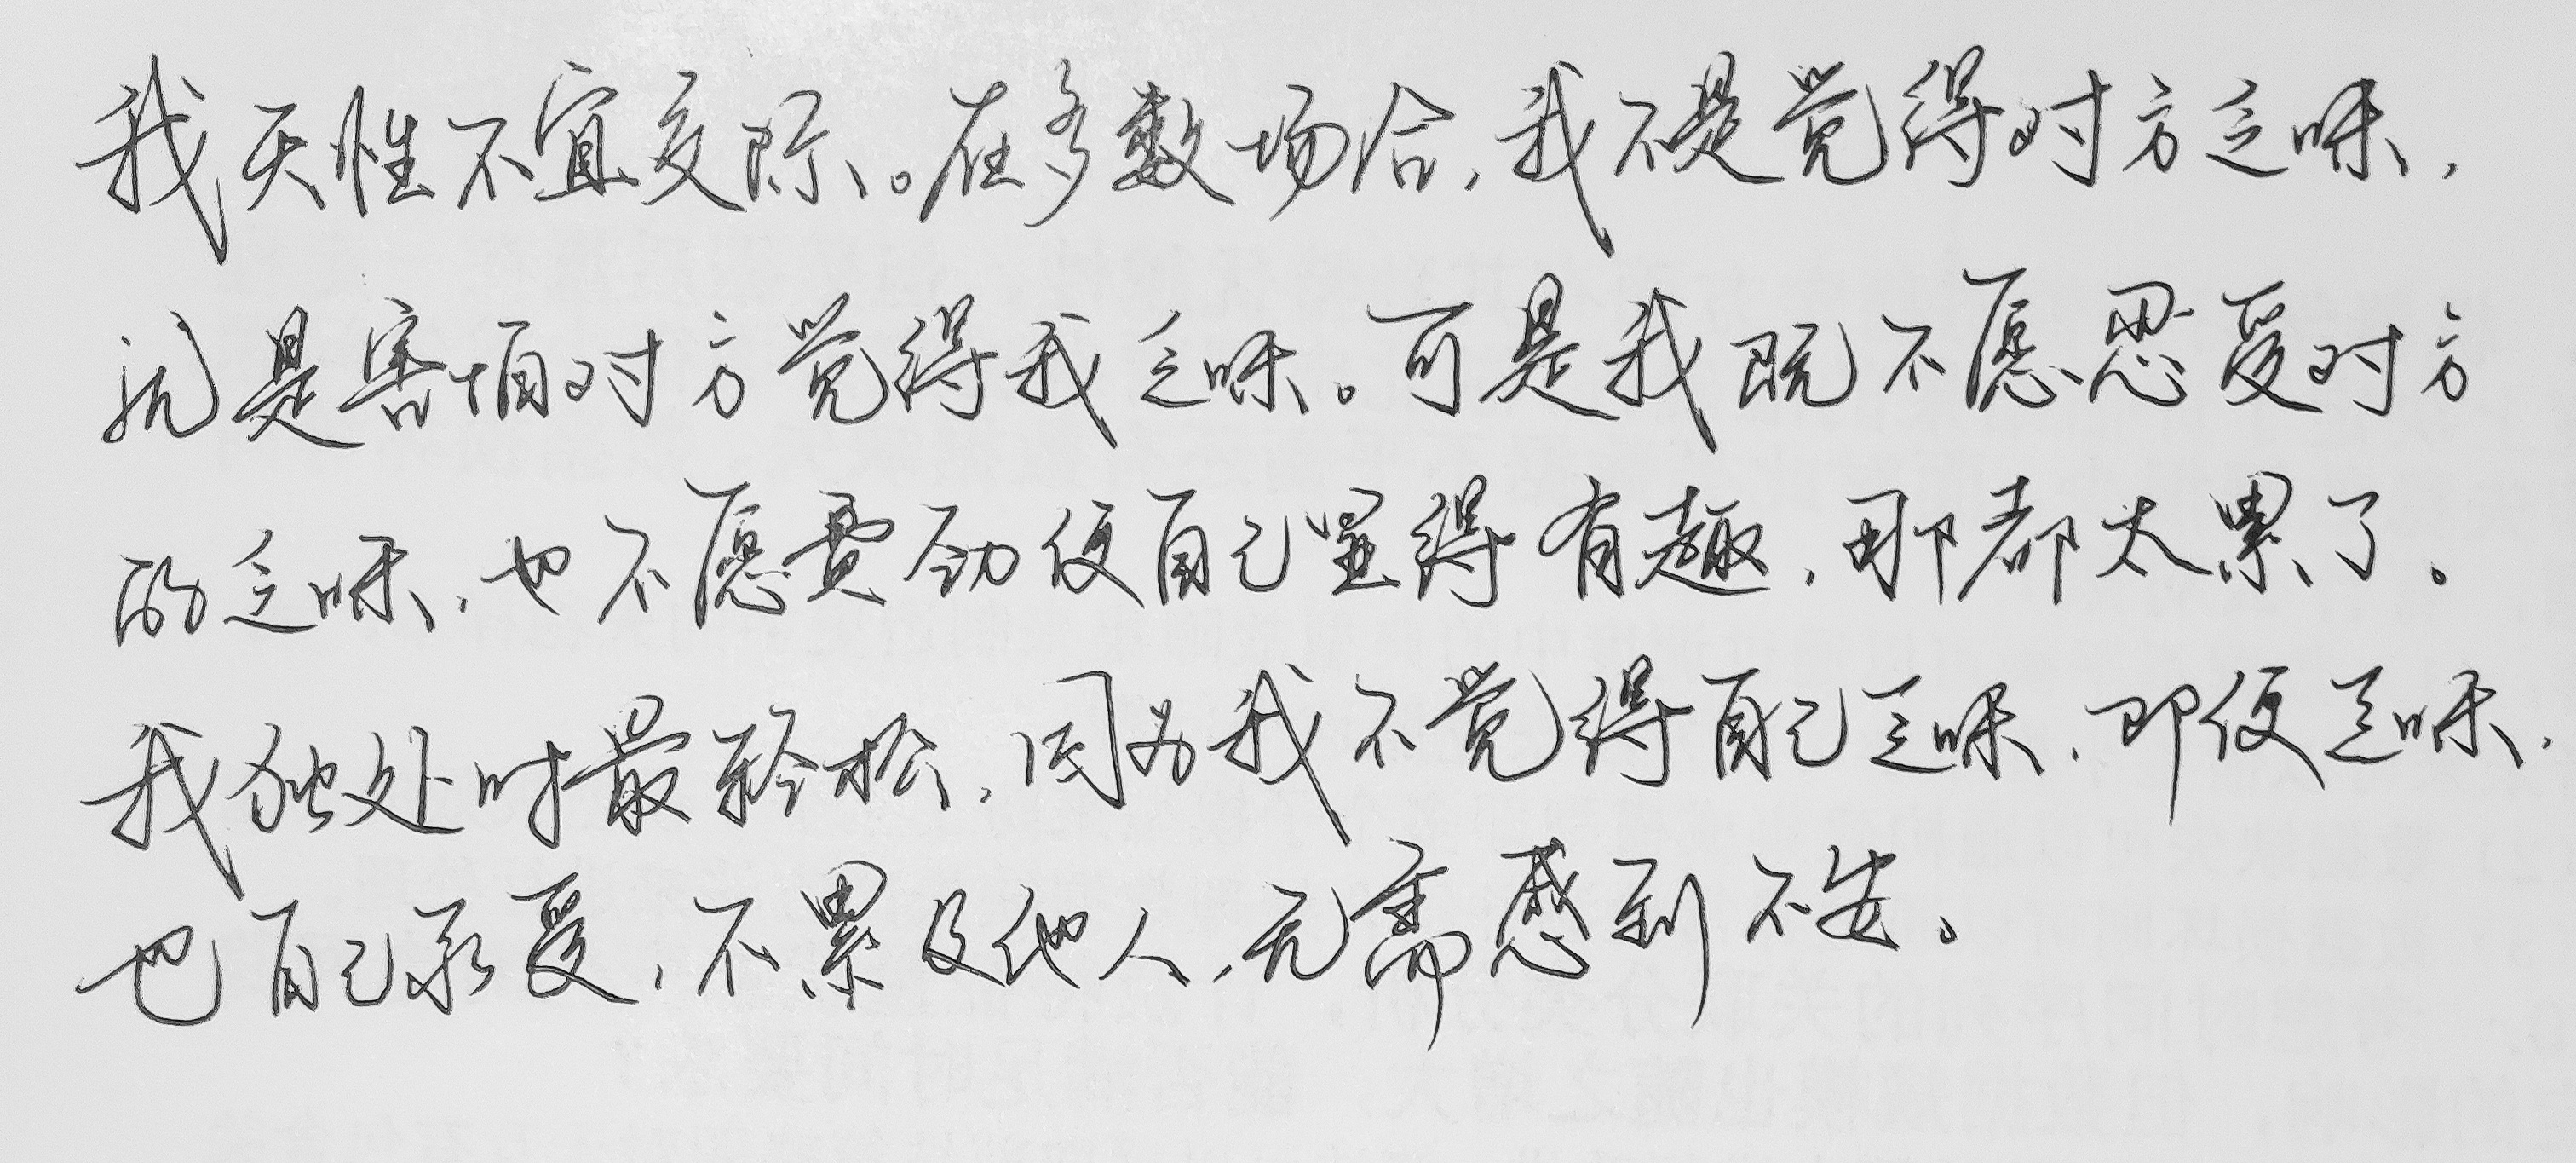 我天性不宜交际。在多数场合,我不是觉得对方乏味,
就是害怕对方觉得我乏味。可是我既不愿忍受对方
的乏味,也不愿费劲使自己显得有趣,那都太累了。
我独处时最轻松,因为我不觉得自己乏味,即使乏味,
也自己承受,不累及他人,无需感到不安。